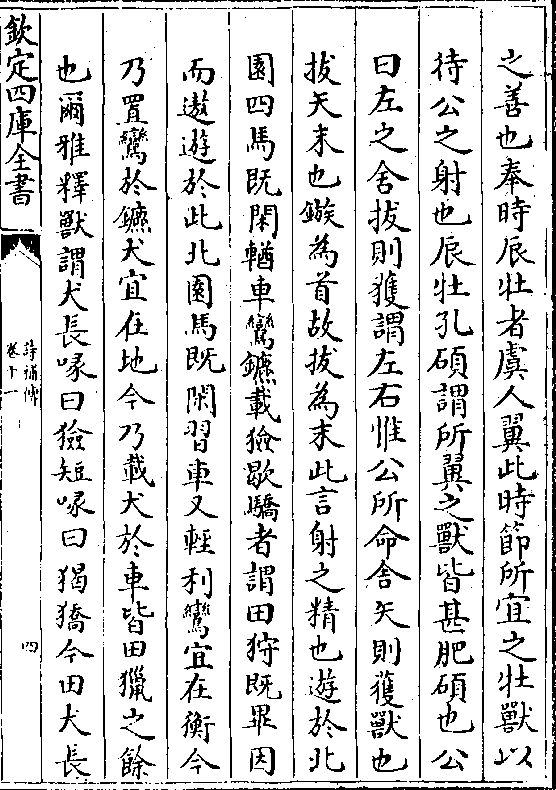 之善也奉時辰牡者虞人翼此時節所宜之牡獸以
待公之射也辰牡孔碩謂所翼之獸皆甚肥碩也公
曰左之舍拔則獲謂左右惟公所命舍矢則獲獸也
拔矢末也鏃為首故拔為末此言射之精也遊於北
園四馬既閑輶車鸞鑣載獫歇驕者謂田狩既畢因
而遨遊於此北園馬既閑習車又輕利鸞宜在衡今
乃置鸞於鑣犬宜在地今乃載犬於車皆田獵之餘
也爾雅釋獸謂犬長喙曰獫短喙曰猲獢今田犬長
欽定四庫全書
詩補傳
卷十一
四